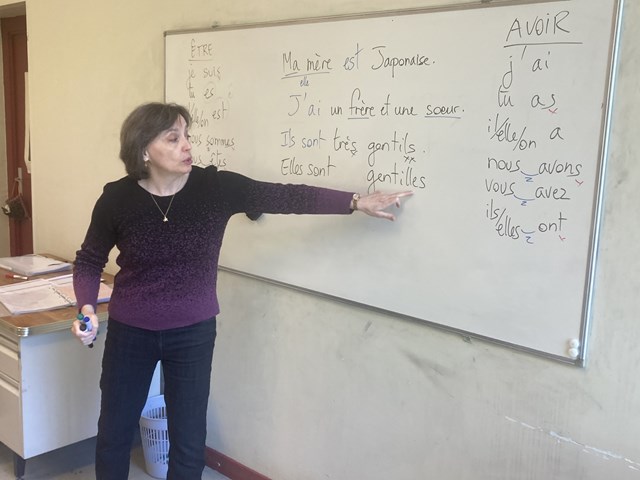 ÊTRE
je suis
tu es
elle/on est
nous sommes
vous êtes
Ma mère est Japonaise.
elle
J'ai un frère et une sœur.
Ils sont très gentils.
Elles sont gentilles
AVOIR
j'ai
tu as
il/elle/on a
nous avons
z
vous avez
z
ils/elles ont
z